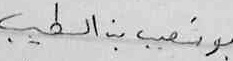 بوشعيب بن الطيب